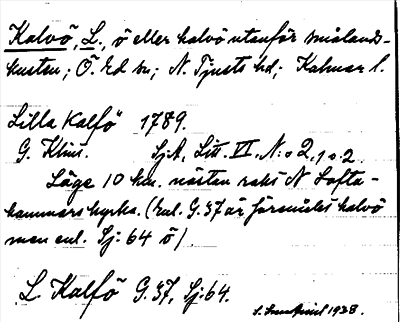 Kalvö, L., ö eller halvö utanför smålands-
kusten; Ö. Ed sn; N. Tjusts hd; Kalmar l.
Lilla Kalfö 1789.
G. Klint. SjA, Litt. VI, N:o 2, 1 o. 2.
Läge 10 km. nästan rakt N Lofta-
hammars kyrka. (Enl. G. 37 är föremålet halvö
men enl. Sj: 64 ö).
L. Kalfö G. 37, Sj: 64.
1938.